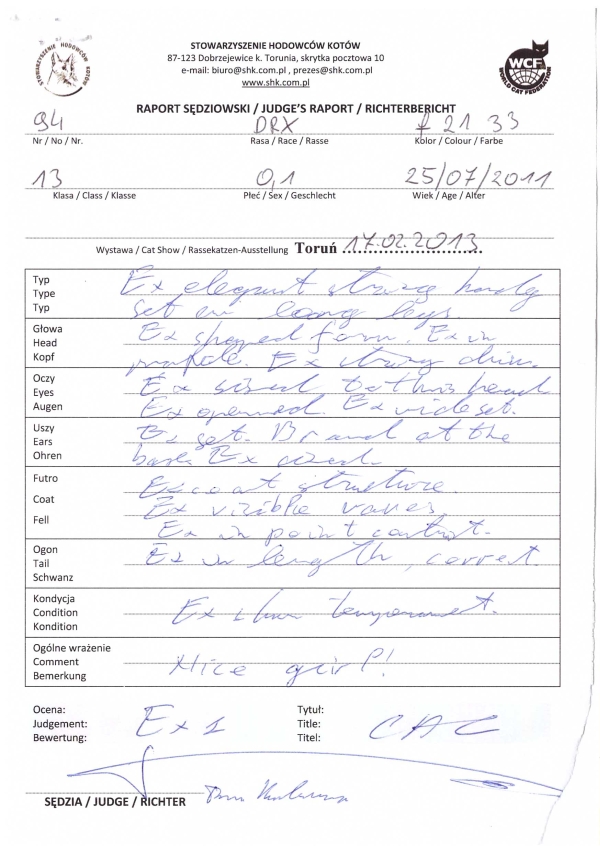 STOWARZYSZENIE HODOWCÓW KOTÓW
STOWARZYSZENIE HODOWCÓW KOTÓW
87-123 Dobrzejewice k. Torunia, skrytka pocztowa 10
e-mail: biuro@shk.com.pl , prezes@shk.com.pl
www.shk.com.pl
WCF
WORLD CAT FEDERATION
RAPORT SĘDZIOWSKI / JUDGE'S RAPORT / RICHTERBERICHT
94 DRX f 21 33
Nr / No / Nr. Rasa / Race / Rasse Kolor / Colour / Farbe
13 0,1 25/07/2011
Klasa / Class / Klasse Płeć / Sex / Geschlecht Wiek / Age / Alter
Wystawa / Cat Show / Rassekatzen-Ausstellung Toruń 17.02.2013.
Typ Ex elegant strong body
Type
Typ set on long legs
Głowa Ex shaped form. Ex in
Head
Kopf profile. Ex strong chin.
Oczy Ex sized to this head
Eyes
Augen Ex opened. Ex wide set.
Uszy Ex set. Broad at the
Ears
Ohren base. Ex sized.
Futro Ex coat structure.
Coat Ex visible waves
Fell Ex in point contrast.
Ogon Ex in length, correct.
Tail
Schwanz
Kondycja
Condition Ex show temperament.
Kondition
Ogólne wrażenie
Comment Nice girl!
Bemerkung
Ocena: Tytuł:
Judgement: Ex 1 Title: CAC
Bewertung: Titel:
SĘDZIA / JUDGE / RICHTER